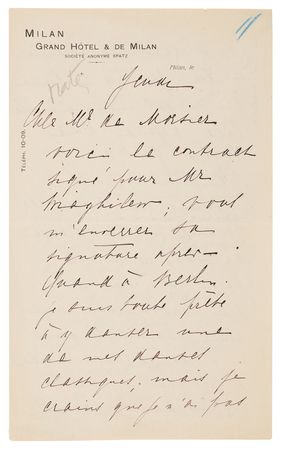 MILAN
GRAND HÔTEL & DE MILAN
SOCIÉTÉ ANONYME SPATZ
Milan, le
TÉLÉPH. 10-09.
Jeudi
Mr de
voici le contract
signé pour Mr
vous
m'enverrez sa
signature après –
Quand à Berlin.
je suis toute prête
à y danser une
de mes danses
classiques, mais je
crains que je n'ai pas